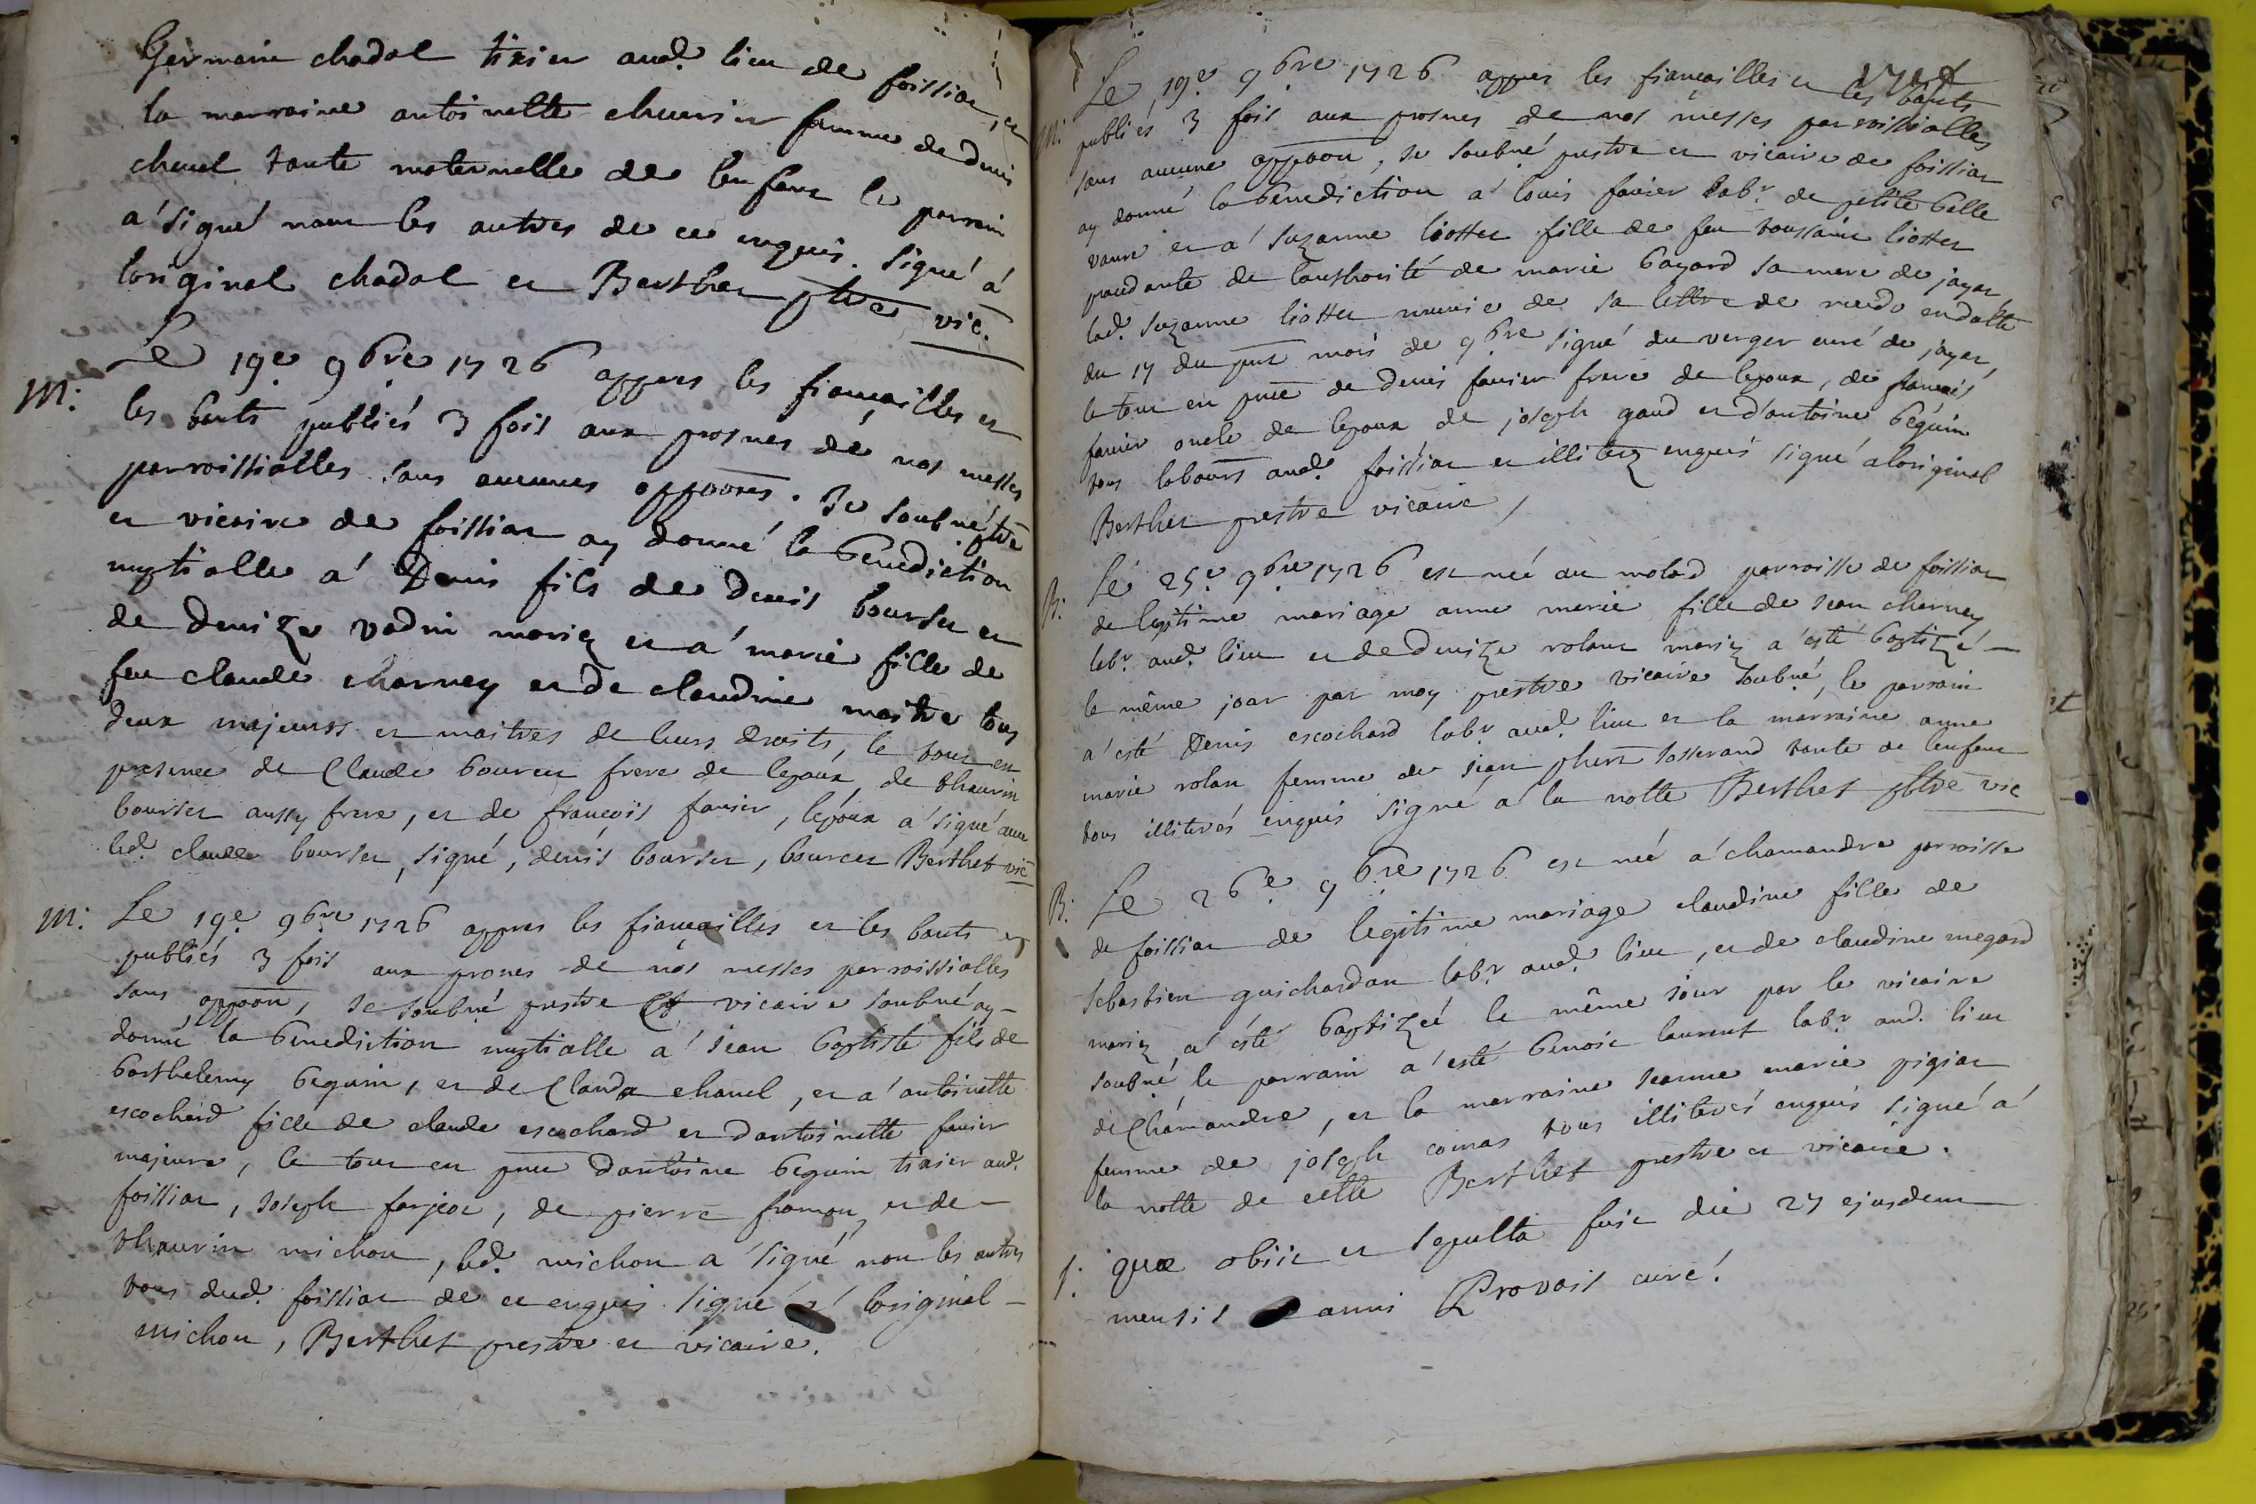 Germain chadal tixier aud. lieu de foissiat, et
la marraine antoinette chevrier femme de denis
chanel tante maternelle de lenfant le parrain
a signé non les autres de ce enquis. signé à
loriginal chadal et Berthet ptre vic.
M: Le 19e 9bre 1726 appres les fiançailles et
les bants publiés 3 fois aux prosnes de nos messes
parroissialles sans aucunes oppoons. Je soubné ptre
et vicaire de foissiat ay donné la benediction
nuptialle a Denis fils de denis bourset et
de denize vadin mariez et a marie fille de
feu claude charnay et de claudine maitre tous
deux majeurs et maitres de leurs droits, le tout en
presence de Claude bourcet frere de lepoux, de thaurin
bourset aussy frere, et de françois favier, lépoux a signé avec
led. claude bourset, signé, denis bourset, bourcet Berthet vic
M: Le 19e 9bre 1726 appres les fiançailles et les bants
publiés 3 fois aux prones de nos messes parroissialles
sans oppoon, Je soubné prestre et vicaire soubné ay
donné la benediction nuptialle a Jean baptiste fils de
barthelemy beguin, et de Clauda chanel, et a antoinette
escochard fille de claude escochard et dantoinette favier
majeure, le tout en pnce dantoine beguin tixier aud.
foissiat, Joseph farjeot, de pierre framon et de
thaurin michon, led. michon a signé non les autres
tous dud. foissiat de ce enquis signé a loriginal
michon, Berthet prestre et vicaire.
Le 19e 9bre 1726 appres les fiançailles et les bants
M: publiés 3 fois aux prosnes de nos messes parroissialles
sans aucune oppoon, Je soubné prestre et vicaire de foissiat
ay donné la benediction a louis favier labr. de petite balle
vaure et a suzanne liottet fille de feu toussaint liottet
procedante de lauthorité de marie bayard sa mere de jayat,
lad. suzanne liottet munie de sa lettre de recedo en datte
du 17 du pnt mois de 9bre signé du verger curé de jayat,
le tout en pnce de denis favier frere de lepoux, de françois
favier oncle de lepoux de joseph gaud et d'antoine béguin
tous labours aud. foissiat et illiterez enquis signé a loriginal
Berthet prestre vicaire,
B: Le 25e 9bre 1726 est née au molard parroisse de foissiat
de legitime mariage anne marie fille de Jean charnay
labr. aud. lieu et de denize rolant mariez a esté baptizé
le même jour par moy prestre vicaire soubné, le parrain
a esté denis escochard labr. aud. lieu et la marraine anne
marie rolan femme de Jean phert Josserand tante de lenfant
tous illiterés enquis signé a la notte Berthet ptre vic
B: Le 26e 9bre 1726 est née a chamandre parroisse
de foissiat de legitime mariage claudine fille de
sebastien guichardan labr. aud. lieu, et de claudine megard
mariez, a esté baptizeé le même Jour par le vicaire
soubné le parrain a esté benoit laurent labr. aud. lieu
de Chamandre, et la marraine Jeanne marie pigiat
femme de joseph comas tous illiterés enquis signé a
la notte de cette Berthet prestre et vicaire.
S: quæ obiit et sepulta fuit die 27 ejusdem
mensis anni Provost curé.